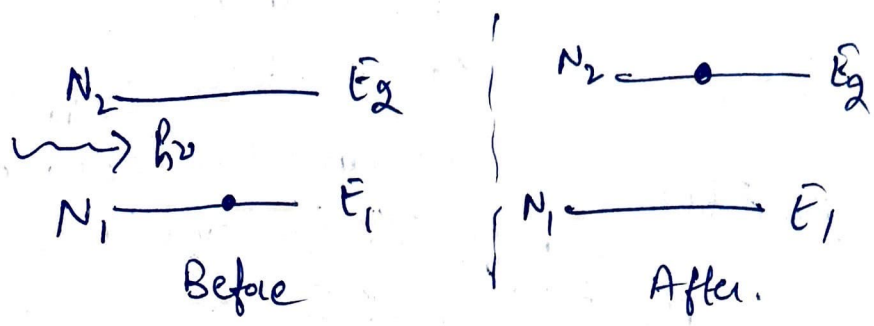 N₂ E₂
hν
N₁ E₁
Before
N₂ E₂
N₁ E₁
After.